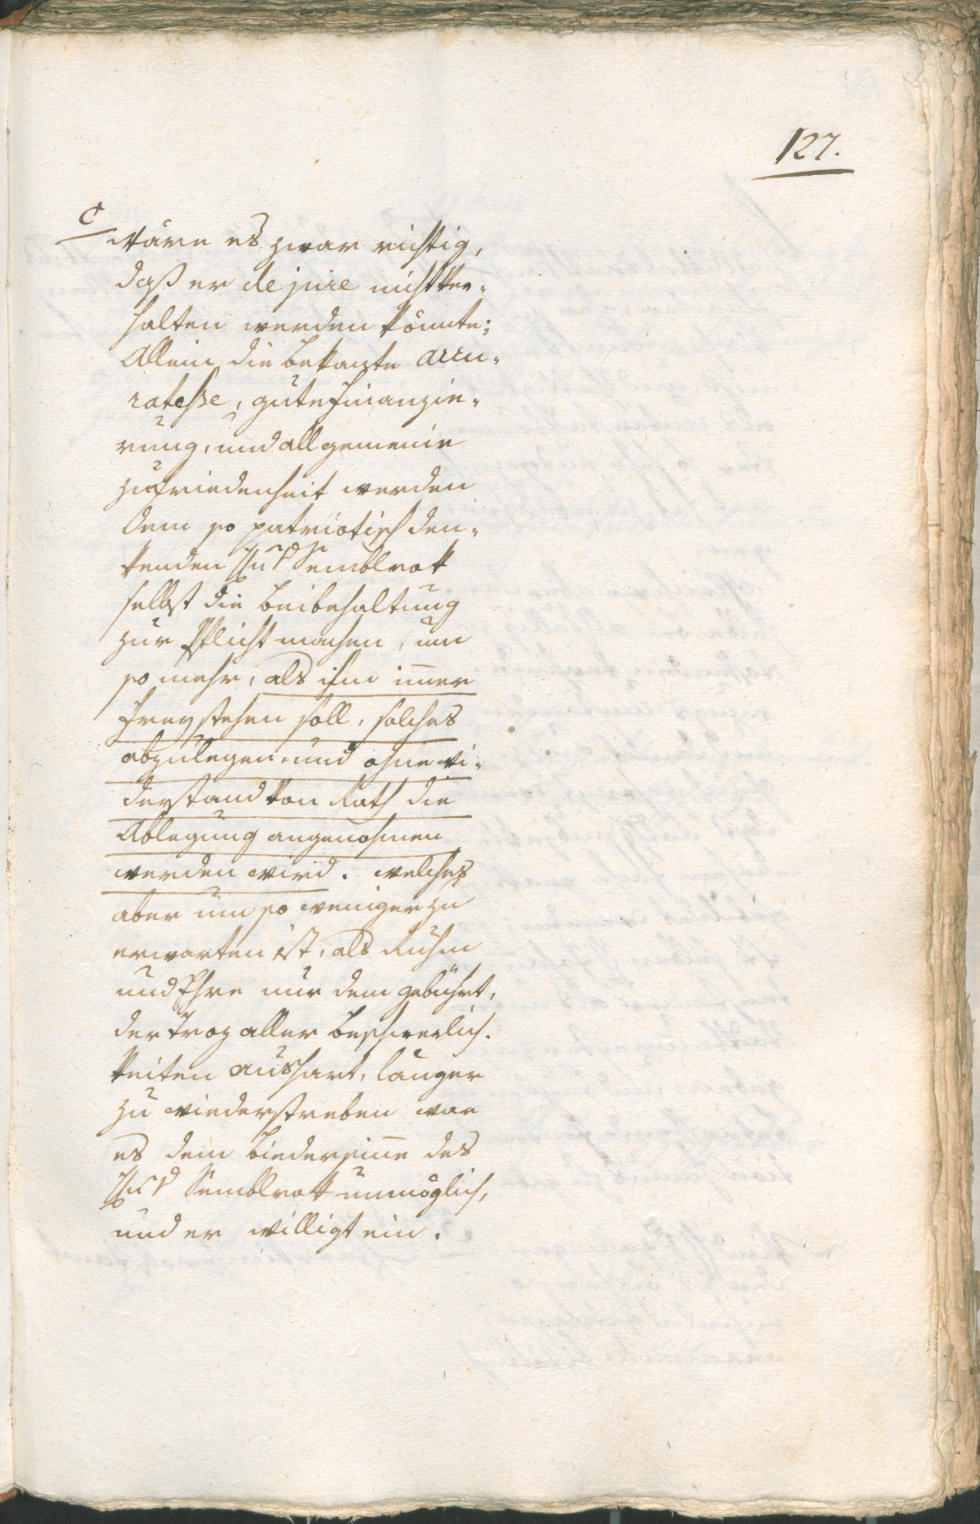 127.
C
wäre es zwar richtig,
daß er de jure nicht ver-
halten werden könnte;
Allein die bekañte accu-
ratesse, gute Finanzie-
rung, und allgemeine
zufriedenheit werden
dem so patriotisch den-
kenden H. Semblrok
selbst die Beibehaltung
zur Pflicht machen, um
so mehr, als ihm im̅er
freystehen soll, solches
abzulegen und ohne wi-
derstand von Rath die
Ablegung angenohmen
werden wird. welches
aber um so weniger zu
erwarten ist, als Ruhm
und Ehre nur dem gebührt,
der troz aller beschwerlich-
keiten aushart, länger
zu wiederstreben war
es dem Biedersin̅e des
H. Semblrok unmöglich,
und er willigt ein.